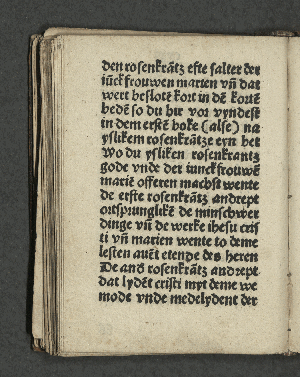 den rosenkrātz efte salter der
iūckfrouwen marien vn̄ dat
wert beslotē kort in dē kortē
bedē so du hir vor vyndest
in dem erstē boke (alse) na
ysliken rosenkrātze eyn bet
Wo du ysliken rosenkrantz
gode vnde der iunckfrouwē
mariē offeren machst wente
de erste rosenkrātz andrept
ortsprunglikē de minschwer
dinge vn̄ de werke ihesu cris
ti vn̄ marien wente to deme
lesten auēt etende des heren
De andʼ rosenkrātz andrept
dat lydēt cristi myt deme we
mode vnde medelydent der